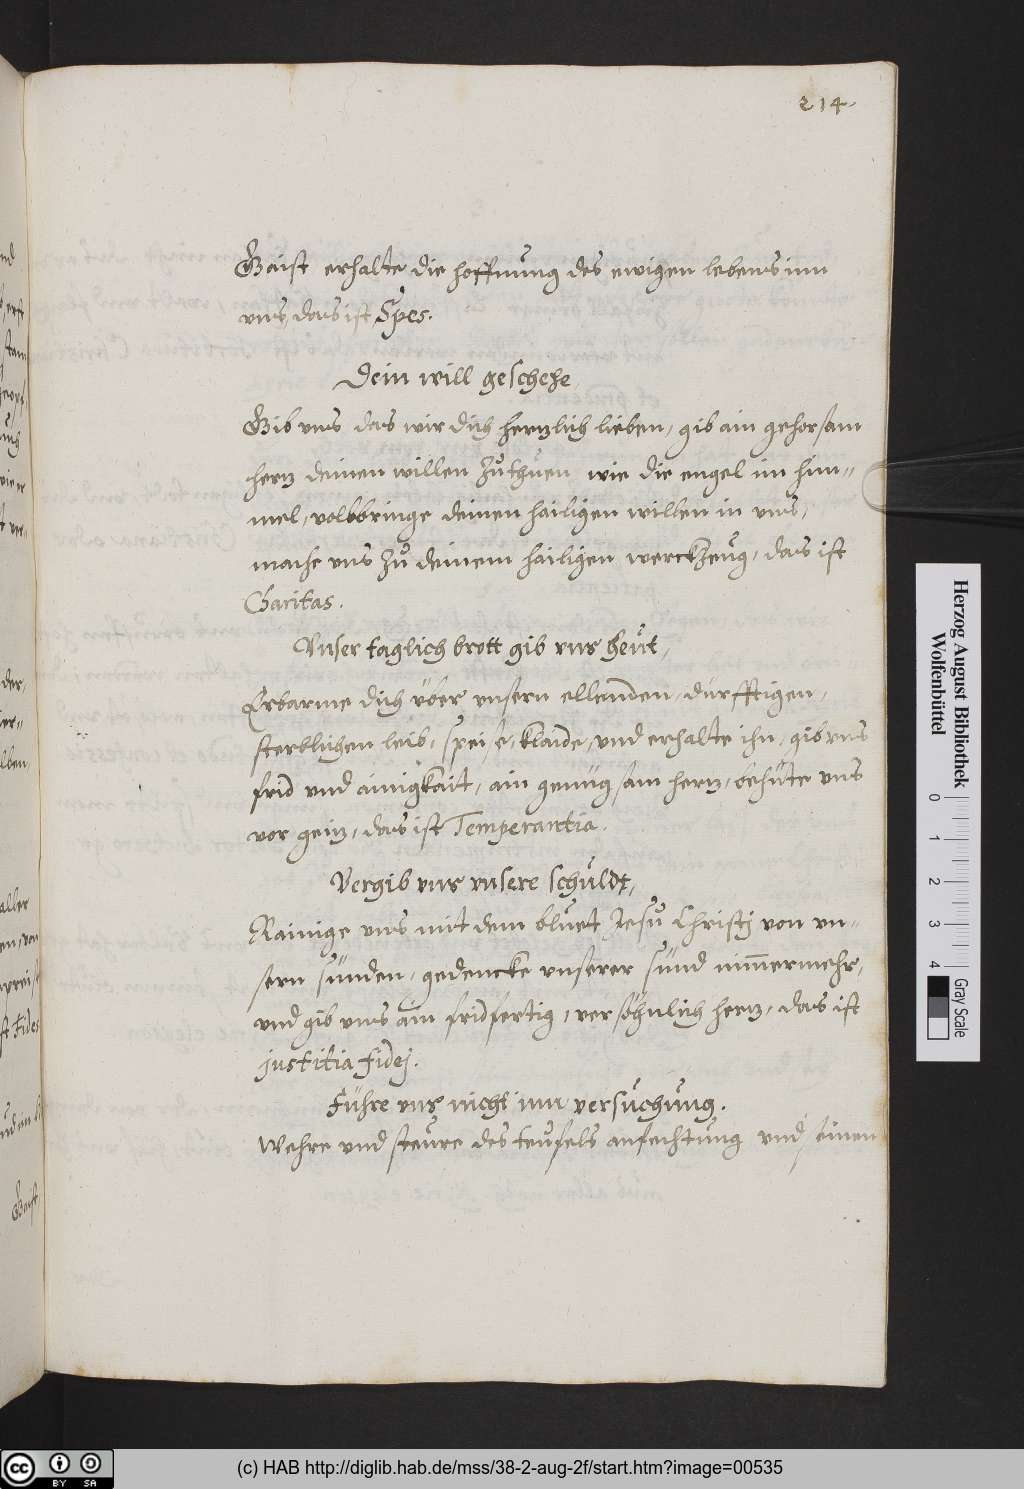 214.
Gaist erhalte die hoffnung des ewigen lebens inn
vns, das ist Spes.
Dein will geschehe,
Gib vns das wir dich hertzlich lieben, gib ain gehorsam
hertz deinen willen zůthůen wie die engel im him-
mel, volbbringe deinen hailigen willen in vns,
mache vns zů deinem hailigen werckzeug, das ist
Charitas.
Vnser taglich brott gib vns heut,
Erbarme dich vber vnsern ellenden, dürfftigen,
sterblichen leib, speise, klaide, vnd erhalte ihn, gib vns
frid vnd ainigkait, ain genůgsam hertz, behüte vns
vor geitz, das ist Temperantia.
Vergib vns vnsere schuldt,
Rainige vns mit dem blůet Jesu Christj von vn-
sern sünden, gedencke vnserer sünd nimmermehr,
vnd gib vns ain fridfertig, versöhnlich hertz, das ist
justitia fidej.
Führe vns nicht inn versuchung.
Wehre vnd steure des teufels anfechtung vnd seinen
Herzog August Bibliothek
Wolfenbüttel
0 1 2 3 4
Gray Scale
cc BY SA
(c) HAB http://diglib.hab.de/mss/38-2-aug-2f/start.htm?image=00535